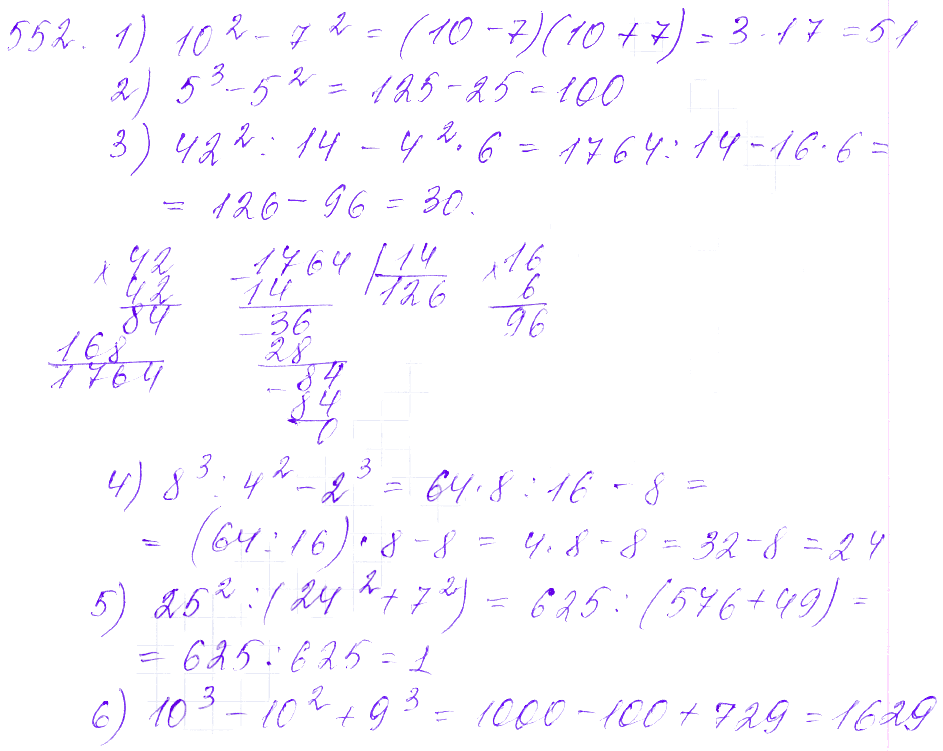 552. 1) 10² - 7² = (10 - 7)(10 + 7) = 3 · 17 = 51
2) 5³ - 5² = 125 - 25 = 100
3) 42² : 14 - 4² · 6 = 1764 : 14 - 16 · 6 =
= 126 - 96 = 30.
× 42
42
84
168
1764
- 1764 | 14
14 126
- 36
28
- 84
84
0
× 16
6
96
4) 8³ : 4² - 2³ = 64 · 8 : 16 - 8 =
= (64 : 16) · 8 - 8 = 4 · 8 - 8 = 32 - 8 = 24
5) 25² : (24² + 7²) = 625 : (576 + 49) =
= 625 : 625 = 1
6) 10³ - 10² + 9³ = 1000 - 100 + 729 = 1629